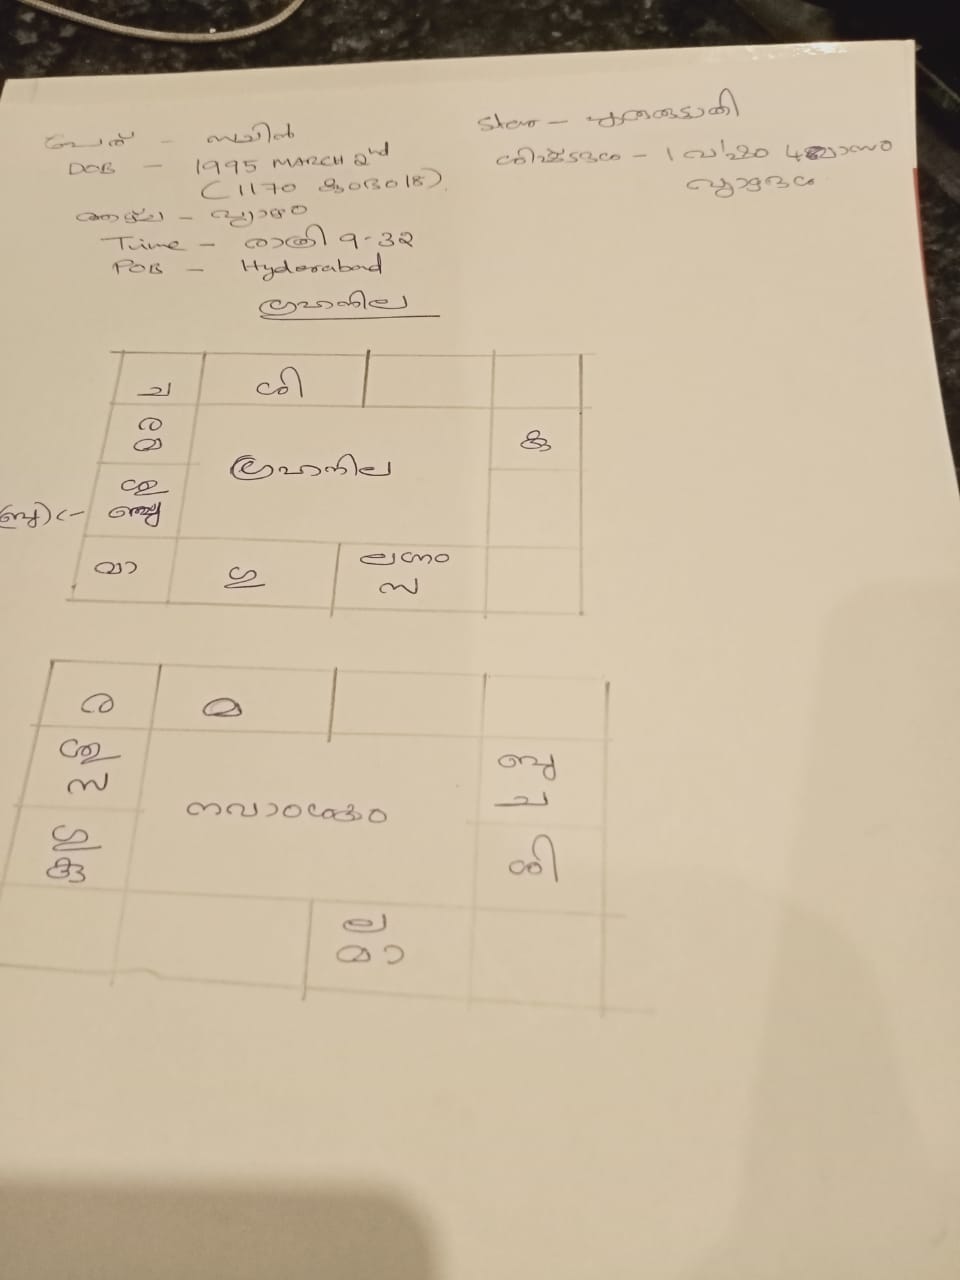 പേര് - സച്ചിൻ
DOB - 1995 MARCH 2nd
(1170 കുംഭം 18).
ആഴ്ച - വ്യാഴം
Time - രാത്രി 9-32
POB - Hyderabad
Star - പൂരുരുട്ടാതി
ശിഷ്ടദശ - 1 വർഷം 4 മാസം
വ്യാഴദശ
ഗ്രഹനില
ച
ശി
ര
മ
ഗ്രഹനില
കു
ശു
മാ
ഗു
ലഗ്നം
സ
ര
മ
ശു
സ
നവാംശകം
ബു
ച
ഗു
കു
ശി
ല
മാ